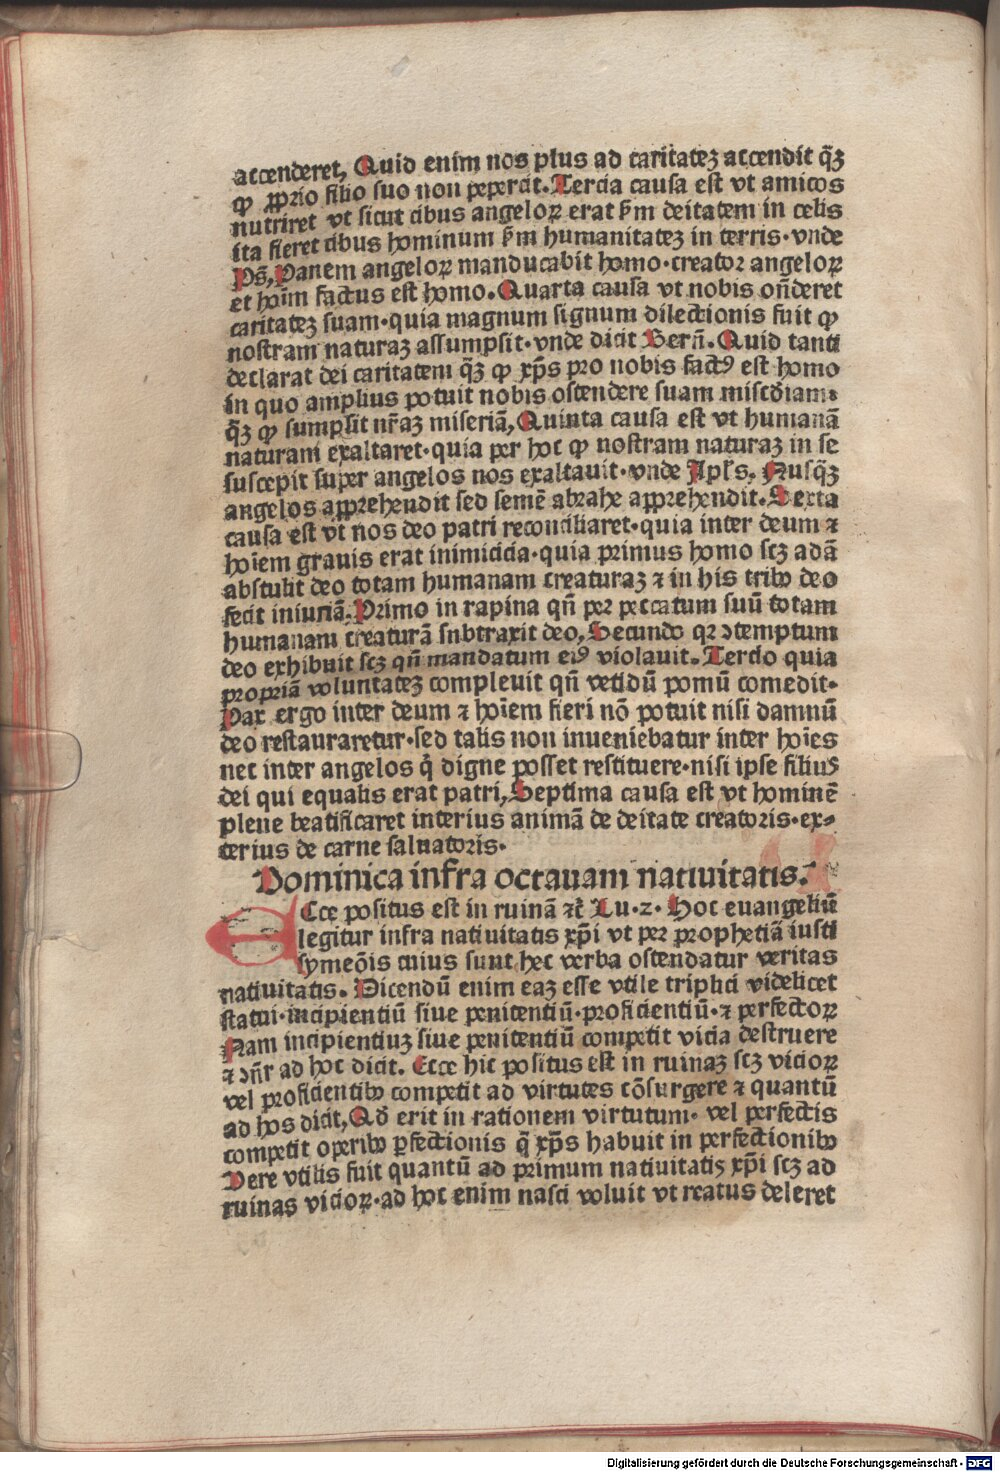 accenderet, Quid enim nos plus ad caritateꝫ accendit qͫꝫ
ꝙ ꝓprio filio suo non pepercit. Tercia causa est vt amicos
nutriret vt sicut cibus angeloꝝ erat sm̄ deitatem in celis
ita fieret cibus hominum sm̄ humanitateꝫ in terris·vnde
Ps̄, Panem angeloꝝ manducabit homo·creator angeloꝝ
et hoīm factus est homo. Quarta causa vt nobis on̄deret
caritateꝫ suam·quia magnum signum dilectionis fuit ꝙ
nostram naturaꝫ assumpsit·vnde dicit Bern̄. Quid tanti
declarat dei caritatem q̄ꝫ ꝙ xp̄s pro nobis factꝰ est homo
in quo amplius potuit nobis ostendere suam misc̄diam·
q̄ꝫ ꝙ sumpsit nr̄aꝫ miseriā, Quinta causa est vt humanā
naturam exaltaret·quia per hoc ꝙ nostram naturaꝫ in se
suscepit super angelos nos exaltauit·vnde Apl̄s. Nusq̄ꝫ
angelos apprehendit sed semē abrahe apprehendit. Sexta
causa est vt nos deo patri reconciliaret·quia inter deum ⁊
hoīem grauis erat inimicicia·quia primus homo scꝫ adā
abstulit deo totam humanam creaturaꝫ ⁊ in his tribꝰ deo
fecit iniuriā. Primo in rapina qn̄ per peccatum suū totam
humanam creaturā subtraxit deo, Secundo qꝛ ↄtemptum
deo exhibuit scꝫ qn̄ mandatum eiꝰ violauit. Tercio quia
propriā voluntateꝫ compleuit qn̄ vetidū pomū comedit·
Pax ergo inter deum ⁊ hoīem fieri nō potuit nisi damnū
deo restauraretur·sed talis non inueniebatur inter hoīes
nec inter angelos q̇ digne posset restituere·nisi ipse filiꝰ
dei qui equalis erat patri, Septima causa est vt hominē
plene beatificaret interius animā de deitate creatoris·ex⸗
terius de carne saluatoris·
Dominica infra octauam natiuitatis.
ECce positus est in ruinā ⁊c̄ Lu·2· Hoc euangeliū
legitur infra natiuitatis xp̄i vt per prophetiā iusti
symeōis cuius sunt hec verba ostendatur veritas
natiuitatis. Dicendū enim eaꝫ esse vtile triplici videlicet
statui·incipientiū siue penitentiū·proficientiū·⁊ perfectoꝝ
Nam incipientiuꝫ siue penitentiū competit vicia destruere
⁊ ↄn̄r ad hoc dicit. Ecce hic positus est in ruinaꝫ scꝫ vicioꝝ
vel proficientibꝰ competit ad virtutes cōsurgere ⁊ quantū
ad hos dicit, Qd̄ erit in rationem virtutum· vel perfectis
competit operibꝰ ꝑfectionis q̄ xp̄s habuit in perfectionibꝰ
Vere vtilis fuit quantū ad primum natiuitatiꝫ xp̄i scꝫ ad
ruinas vicioꝝ·ad hoc enim nasci voluit vt reatus deleret
Digitalisierung gefördert durch die Deutsche Forschungsgemeinschaft · DFG